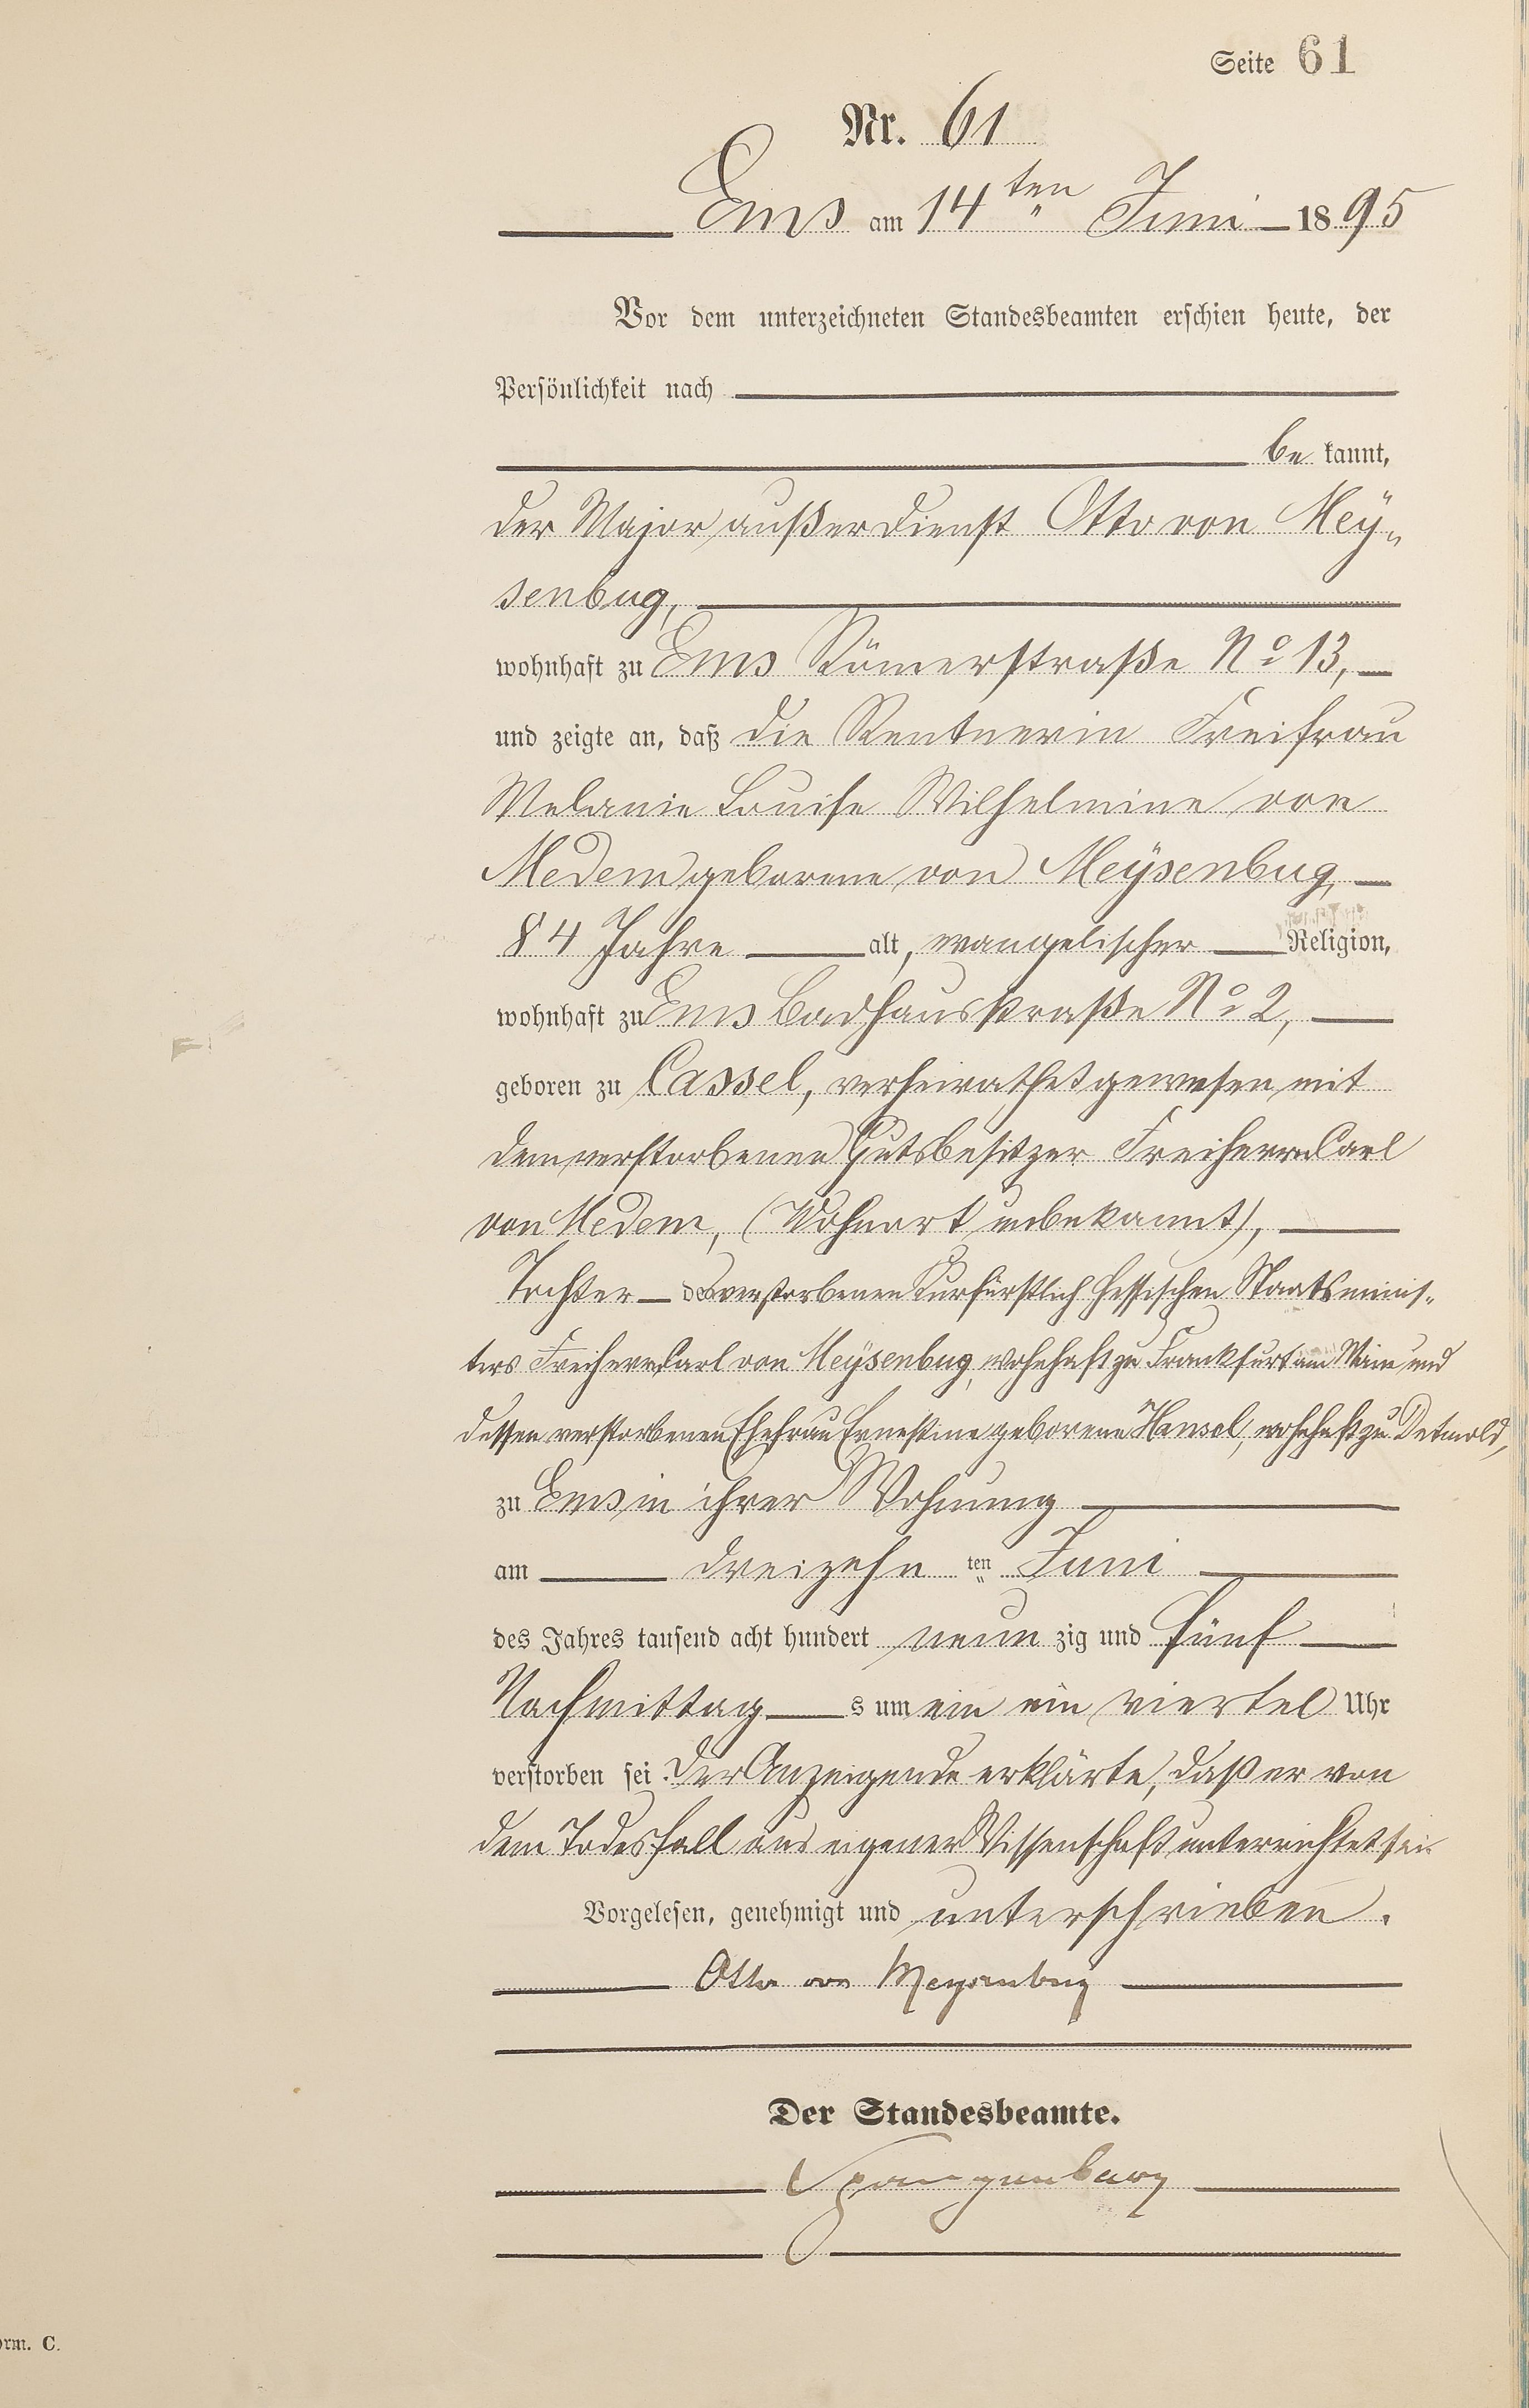 Seite 61
Nr. 61
Ems am 14ten Juni 1895
Vor dem unterzeichneten Standesbeamten erschien heute, der
Persönlichkeit nach
be kannt,
der Major außer Dienst Otto von Mey„
senbug,
wohnhaft zu Ems Römerstraße No 13,
und zeigte an, daß die Rentnerin Freifrau
Melanie Louise Wilhelmine von
Medem geborene von Meÿsenbug,
84 Jahre alt, evangelischer Religion,
wohnhaft zu Ems Badhausstraße No 2,
geboren zu Cassel, verheirathet gewesen mit
dem verstorbenen Gutsbesitzer Freiherrn Carl
von Medem, (Wohnort unbekannt),
Tochter des verstorbenen Kurfürstlich Hessischen Staatsminis„
ters Freiherrn Carl von Meÿsenbug, wohnhaft zu Frankfurt am Main und
dessen verstorbenen Ehefrau Ernestine geborene Hansel, wohnhaft zu Detmold,
zu Ems in ihrer Wohnung
am dreizehn ten Juni
des Jahres tausend acht hundert neun zig und fünf
Nachmittag s um ein ein viertel Uhr
verstorben sei. Der Anzeigende erklärte, daß er von
dem Todesfall aus eigener Wissenschaft unterrichtet sei.
Vorgelesen, genehmigt und unterschrieben.
Otto von Meysenbug
Der Standesbeamte.
Spangenberg
orm. C.